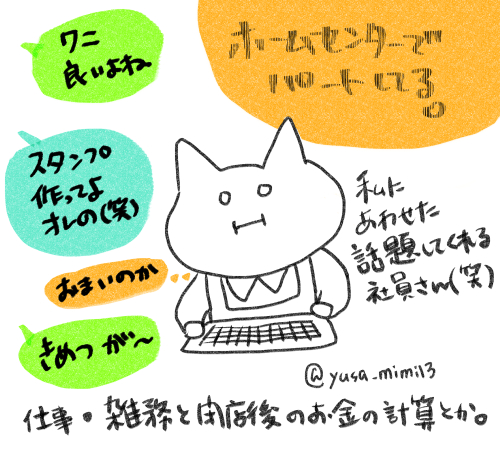 ワニ
良いよね。
ホームセンターで
パートしてる。
スタンプ
作ってよ
オレの(笑)
おまいのか
きめつが〜
私に
あわせた
話題してくれる
社員さん(笑)
@yusa_mimi13
仕事・雑務と閉店後のお金の計算とか。